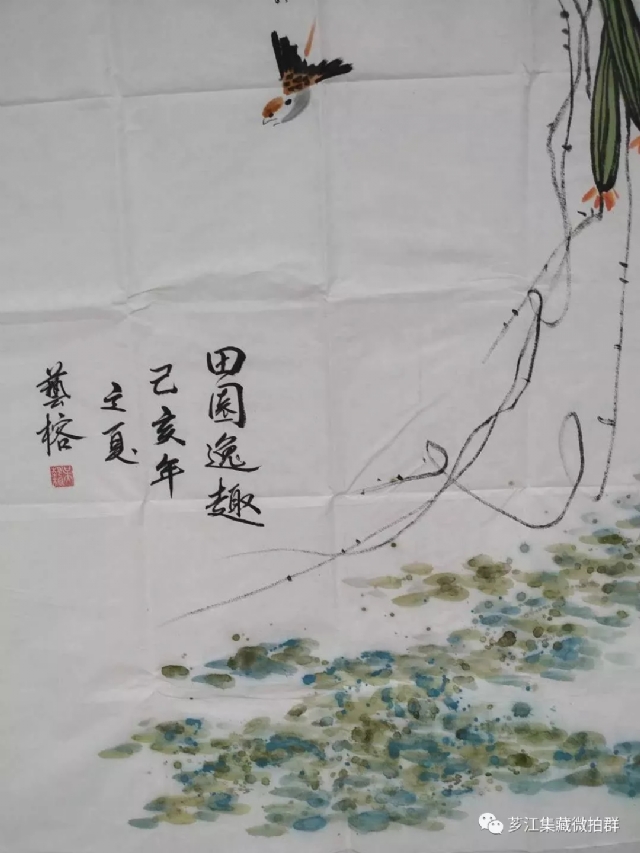 田園逸趣
己亥年
立夏
藝榕
芗江集藏微拍群